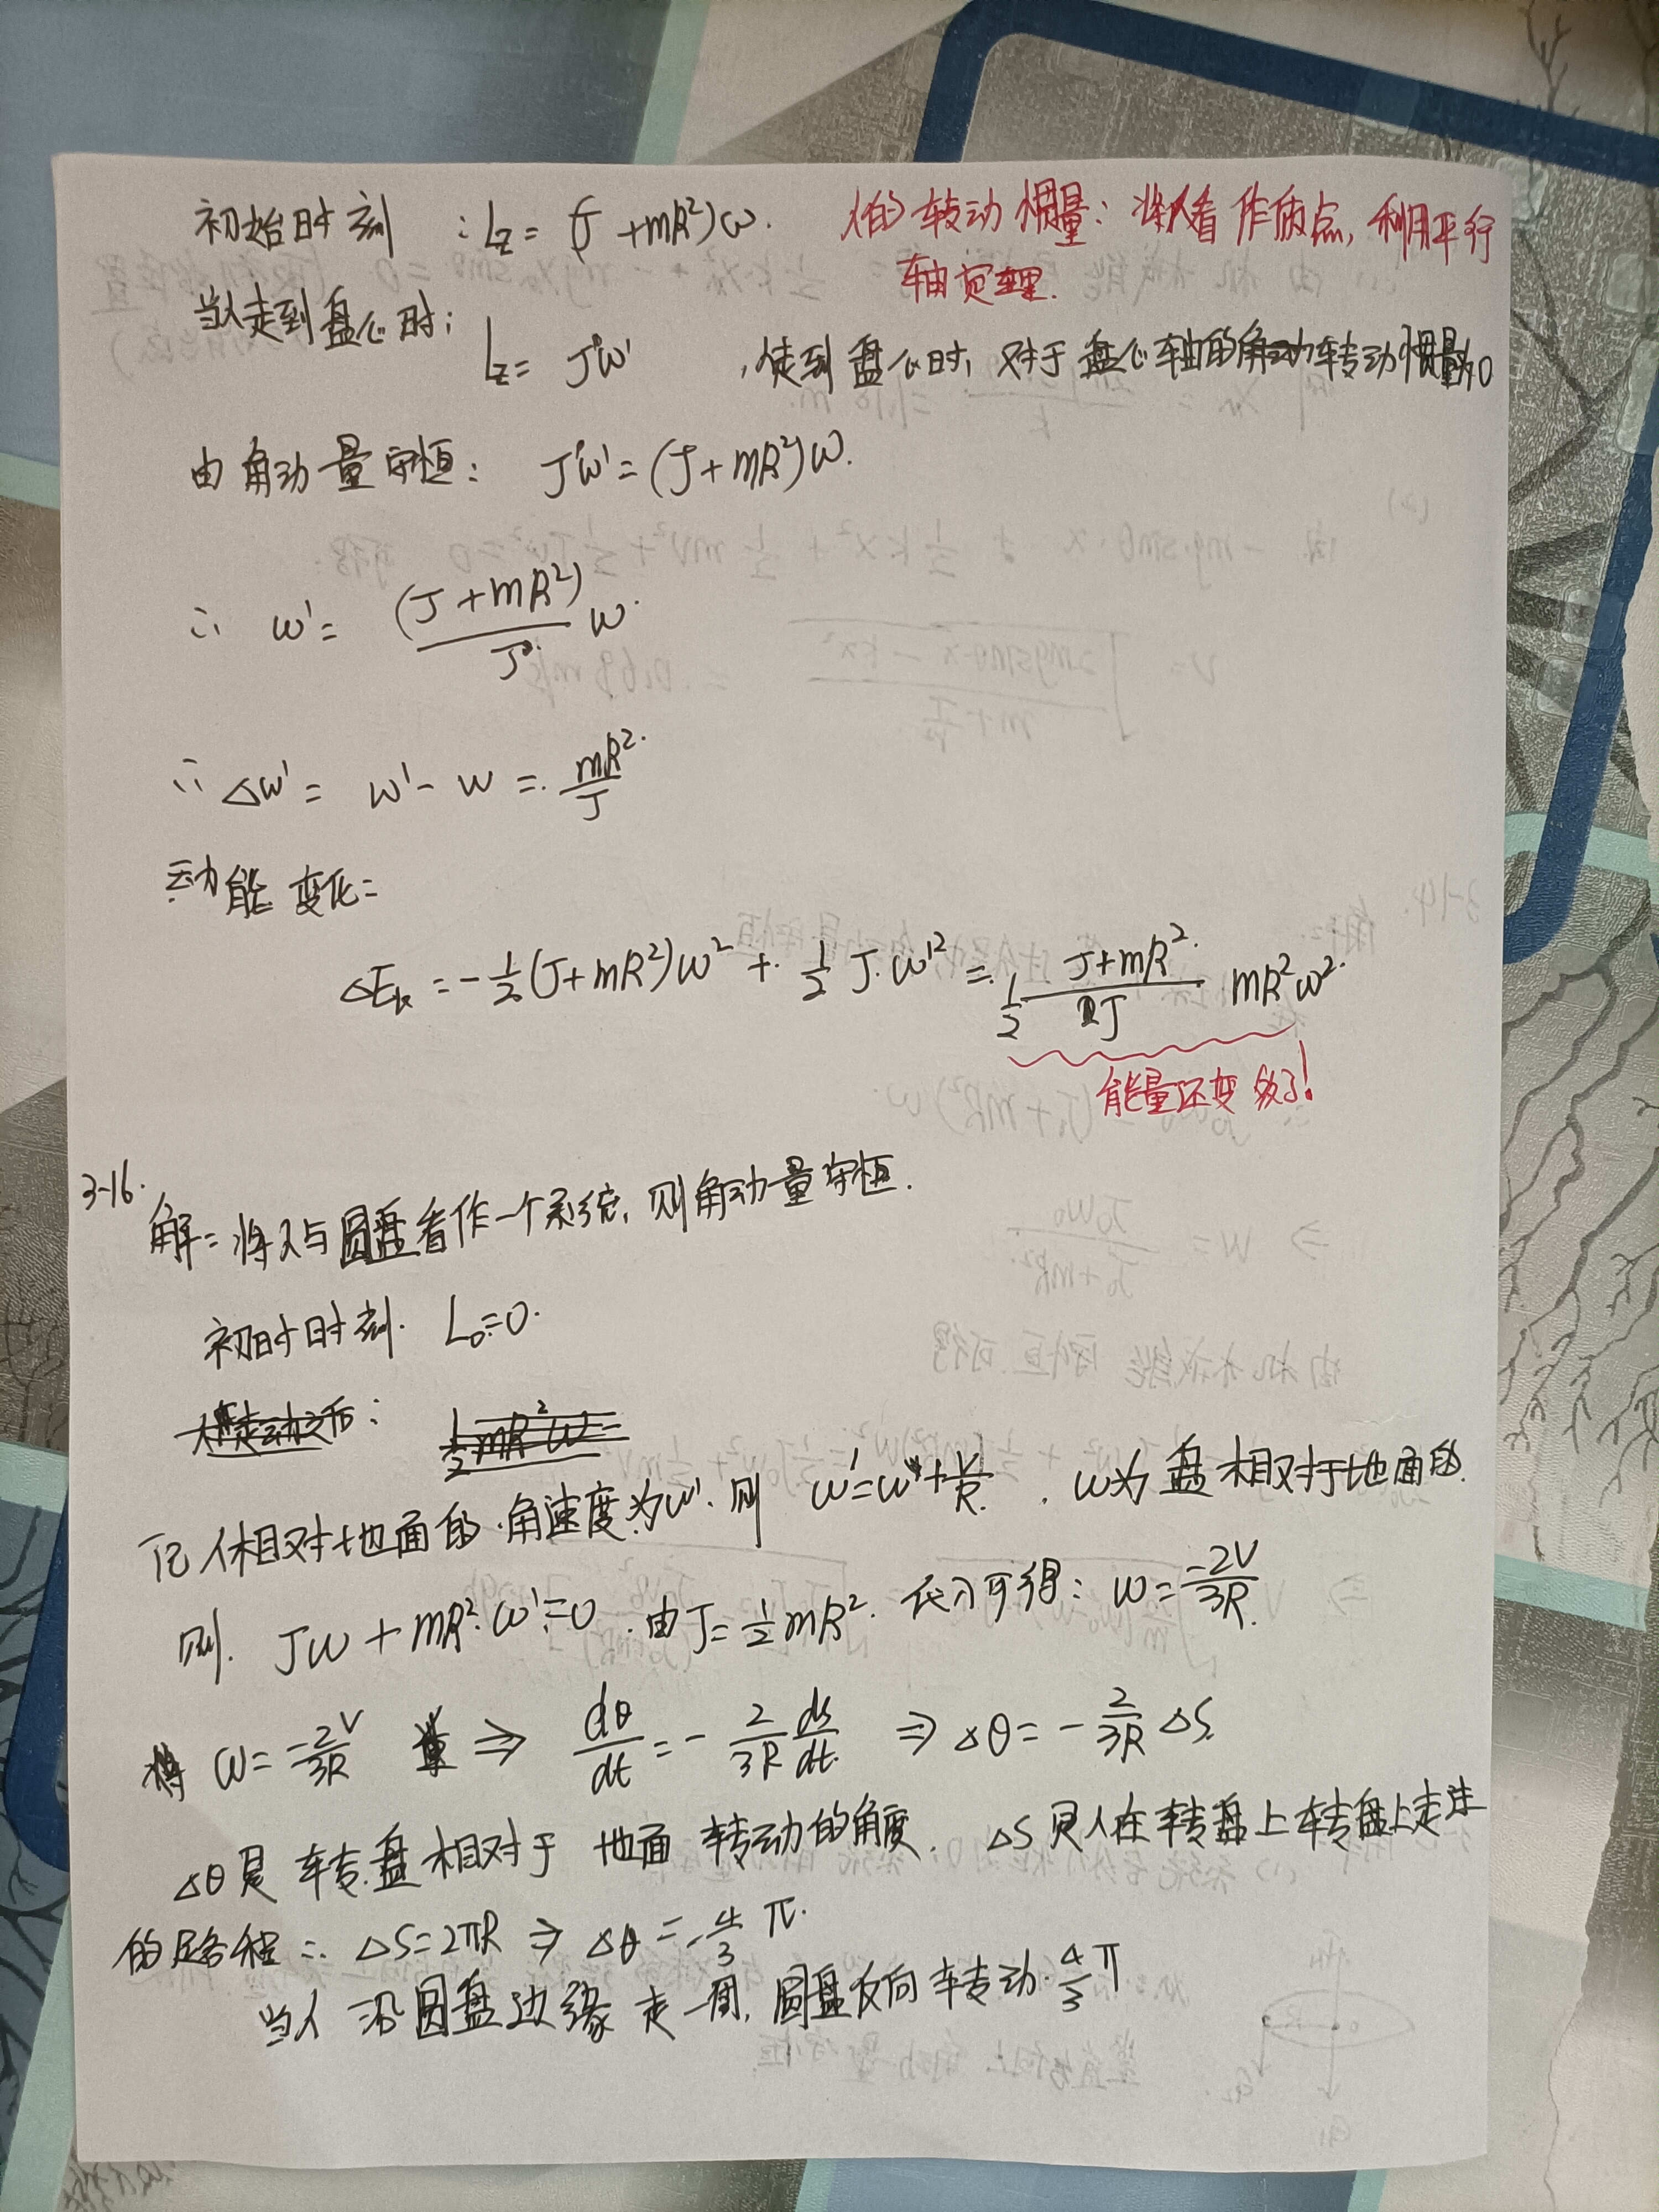 初始时刻：Lz = (J + mR²)ω. 人的转动惯量：将人看作质点，利用平行
轴定理.
当人走到盘心时：
Lz = Jω' ，人走到盘心时，对于盘心轴的转动惯量为0
由角动量守恒： Jω' = (J + mR²)ω.
∴ ω' = (J + mR²)/J ω.
∴ Δω' = ω' - ω = mR²/J
动能变化：
ΔEk = -1/2 (J + mR²)ω² + 1/2 J·ω'² = 1/2 (J + mR²)/J mR²ω².
能量还变多了！
3-16.
解：将人与圆盘看作一个系统，则角动量守恒.
初时时刻. L₀ = 0.
记人相对地面的角速度为ω'. 则 ω' = ω + v/R. ω为盘相对于地面的.
则. Jω + mR²·ω' = 0. 由 J = 1/2 mR². 代入可得：ω = -2v/3R.
将 ω = -2v/3R ⇒ dθ/dt = - 2/3R ds/dt ⇒ Δθ = - 2/3R Δs.
Δθ是转盘相对于地面转动的角度. ΔS是人在转盘上转盘上走过
的路程 ∴ ΔS = 2πR ⇒ Δθ = -4/3 π.
当人沿圆盘边缘走一周，圆盘反向转动 4/3 π